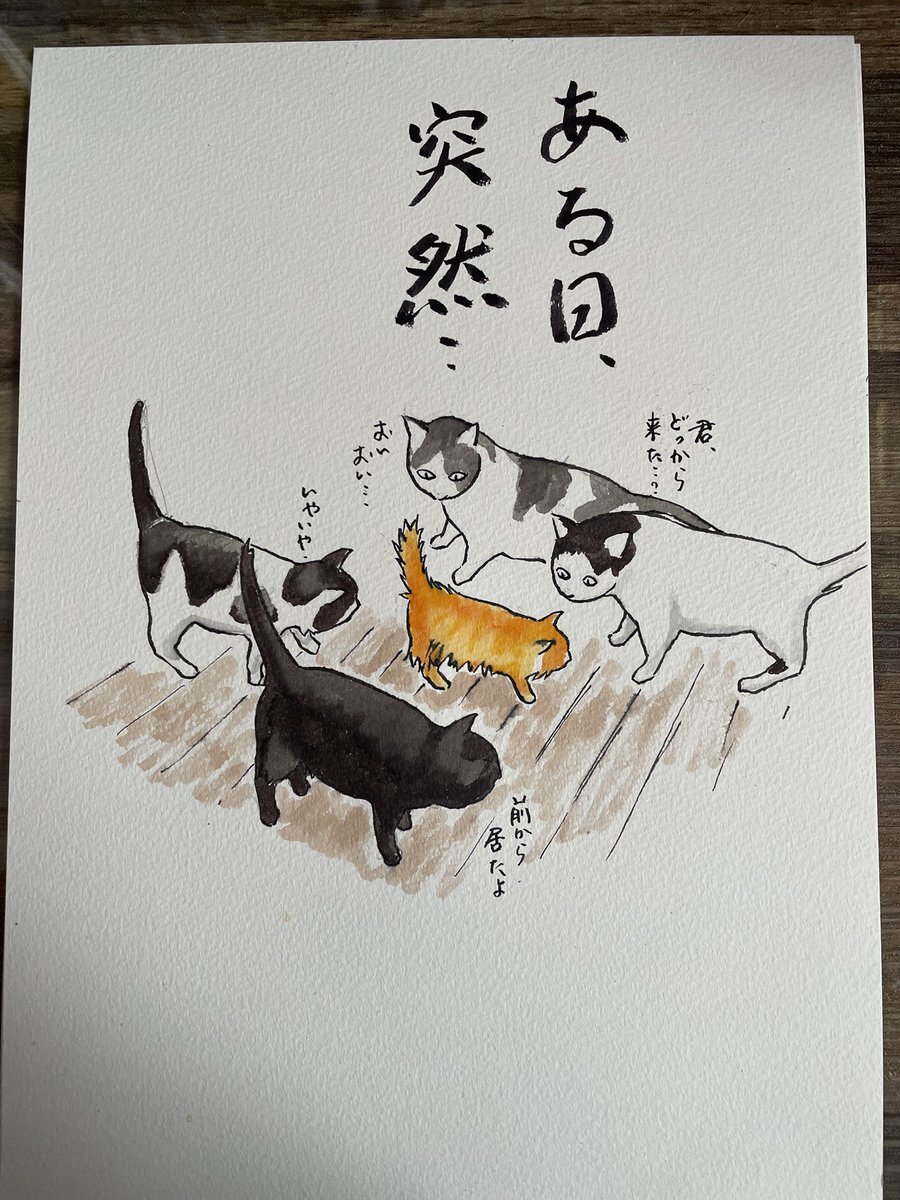 ある日、
突然…
君、
どっから
来た…？
おい
おい…
いやいや…
前から
居たよ